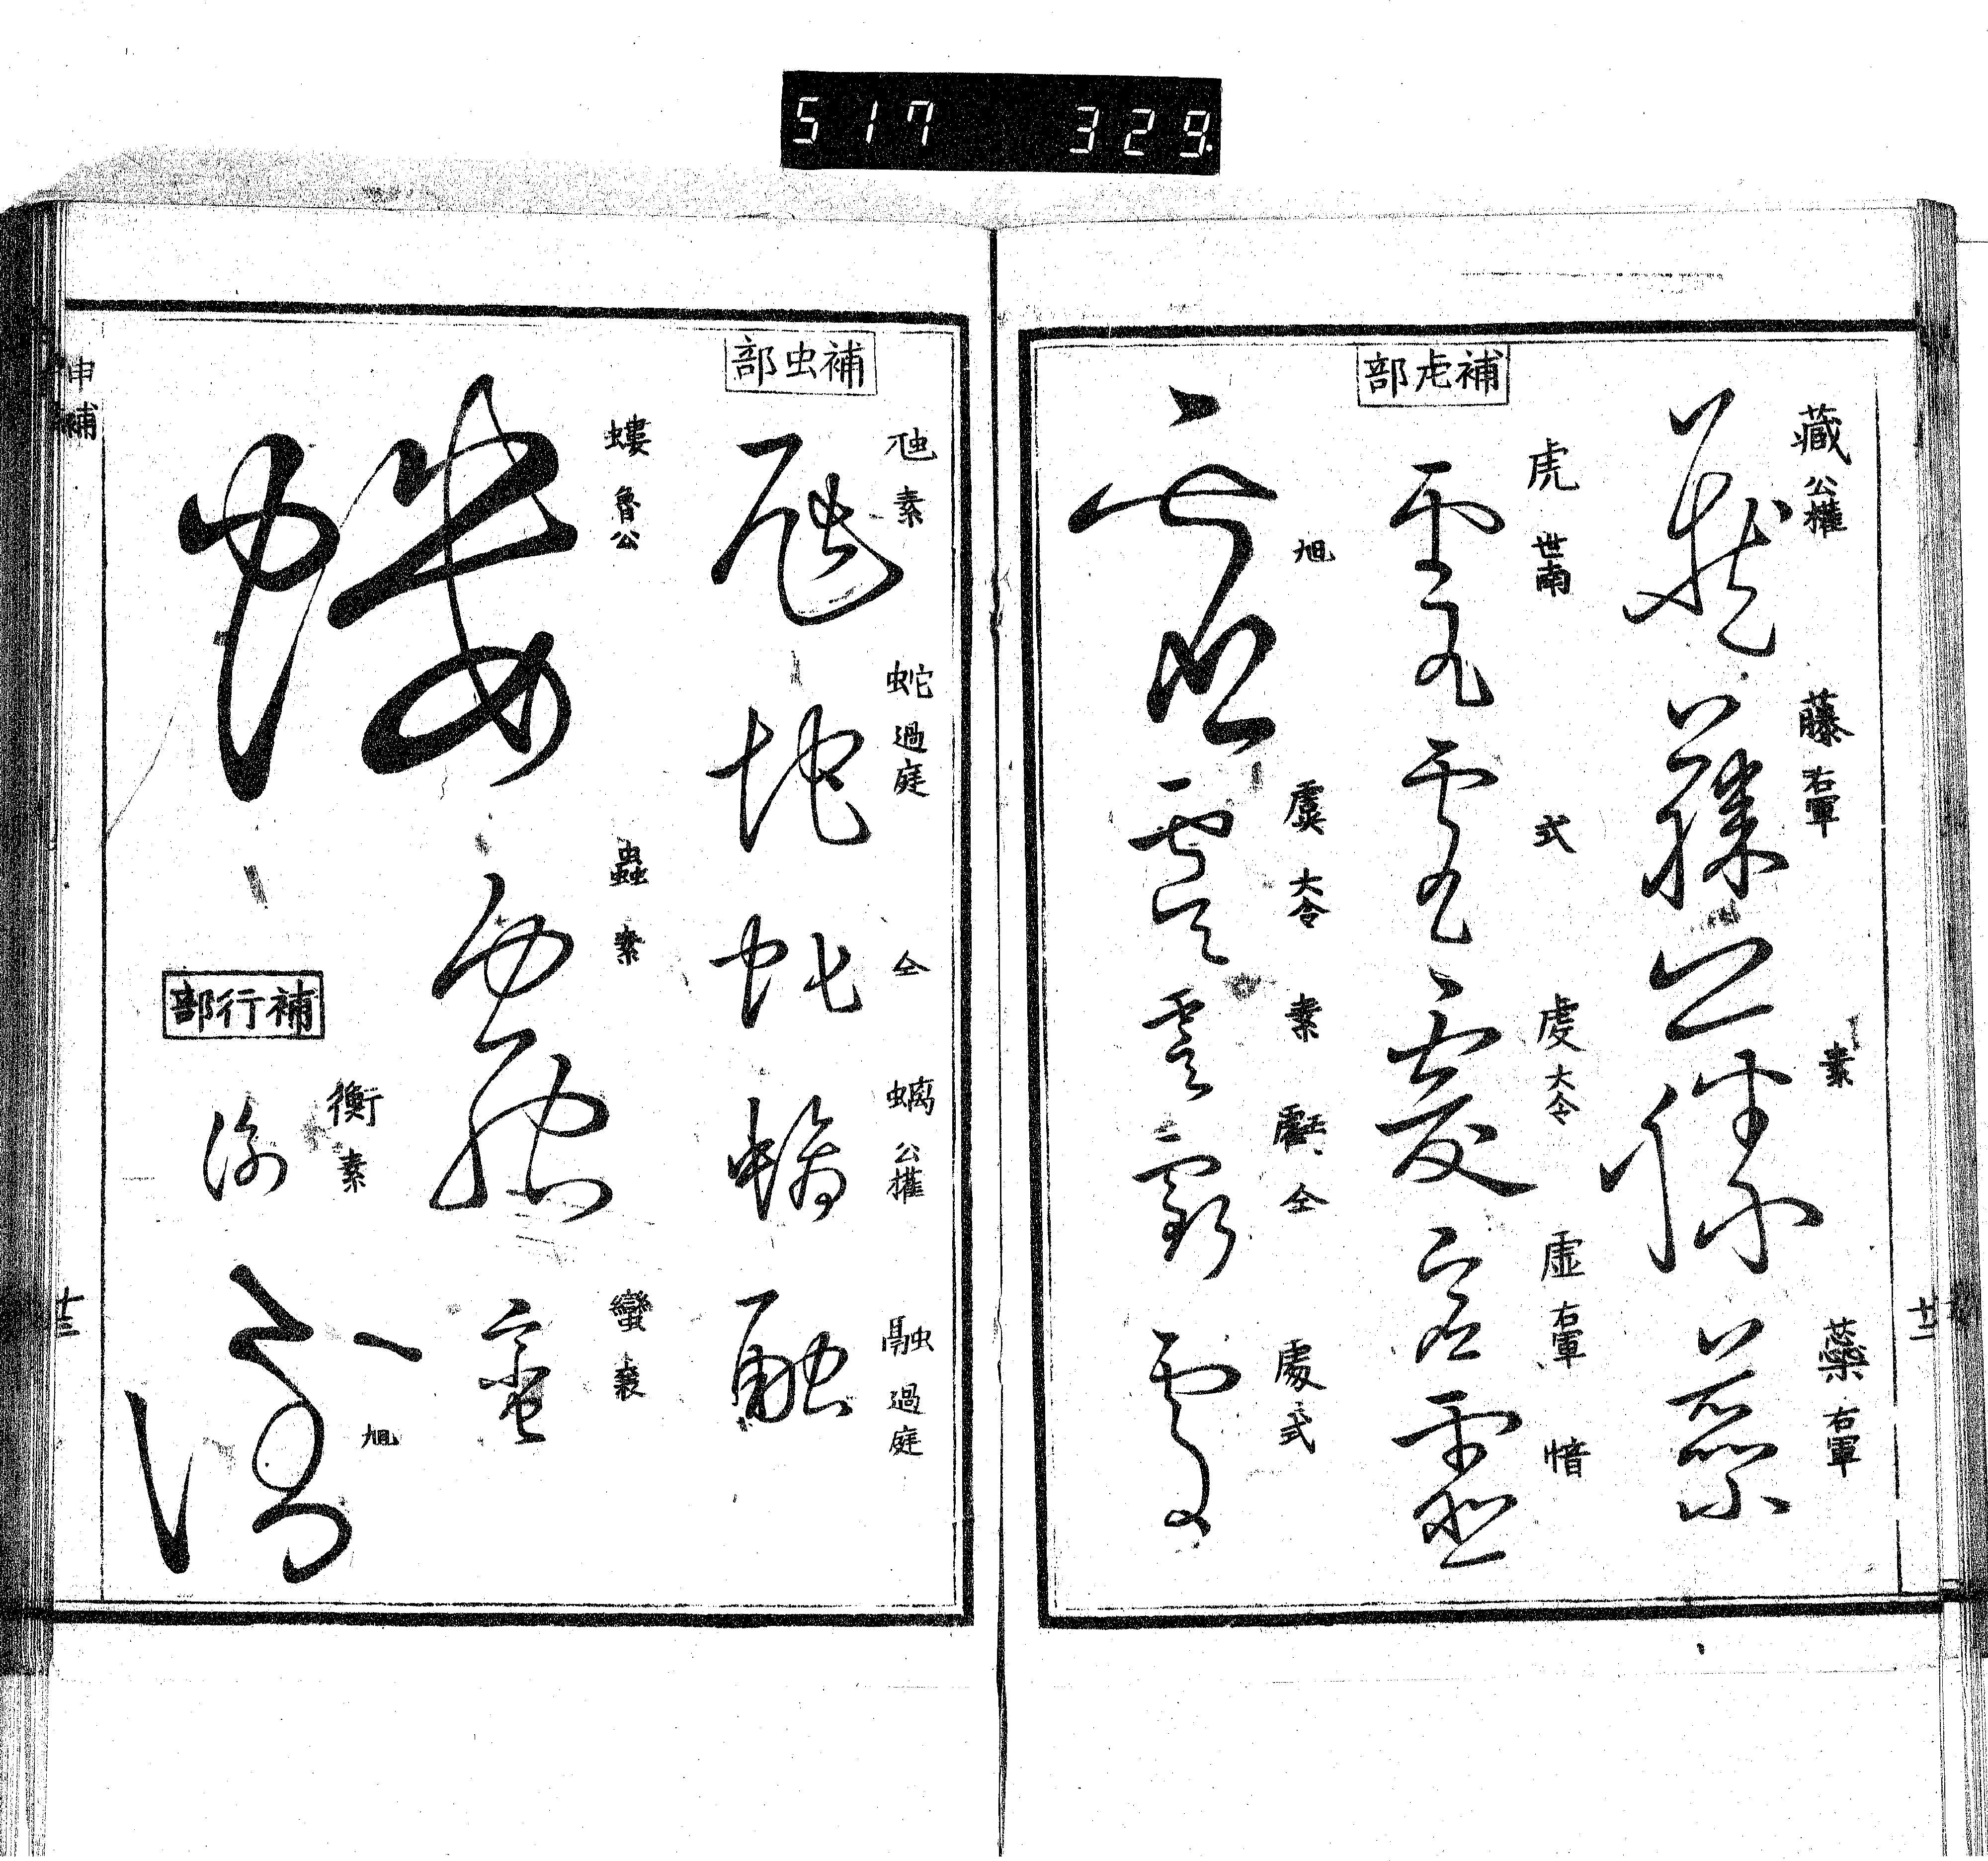 517 329
藏 公權
藤 右軍
素
藥 右軍
廿二
補虍部
虎 世南
式
虔 大令
虚 右軍
愔
旭
虞 大令
素
仝
處 式
補虫部
虺 素
蛇 過庭
仝
螭 公權
融 過庭
螻 魯公
蟲 素
蠻 襲
補行部
衡 素
旭
申補
十三